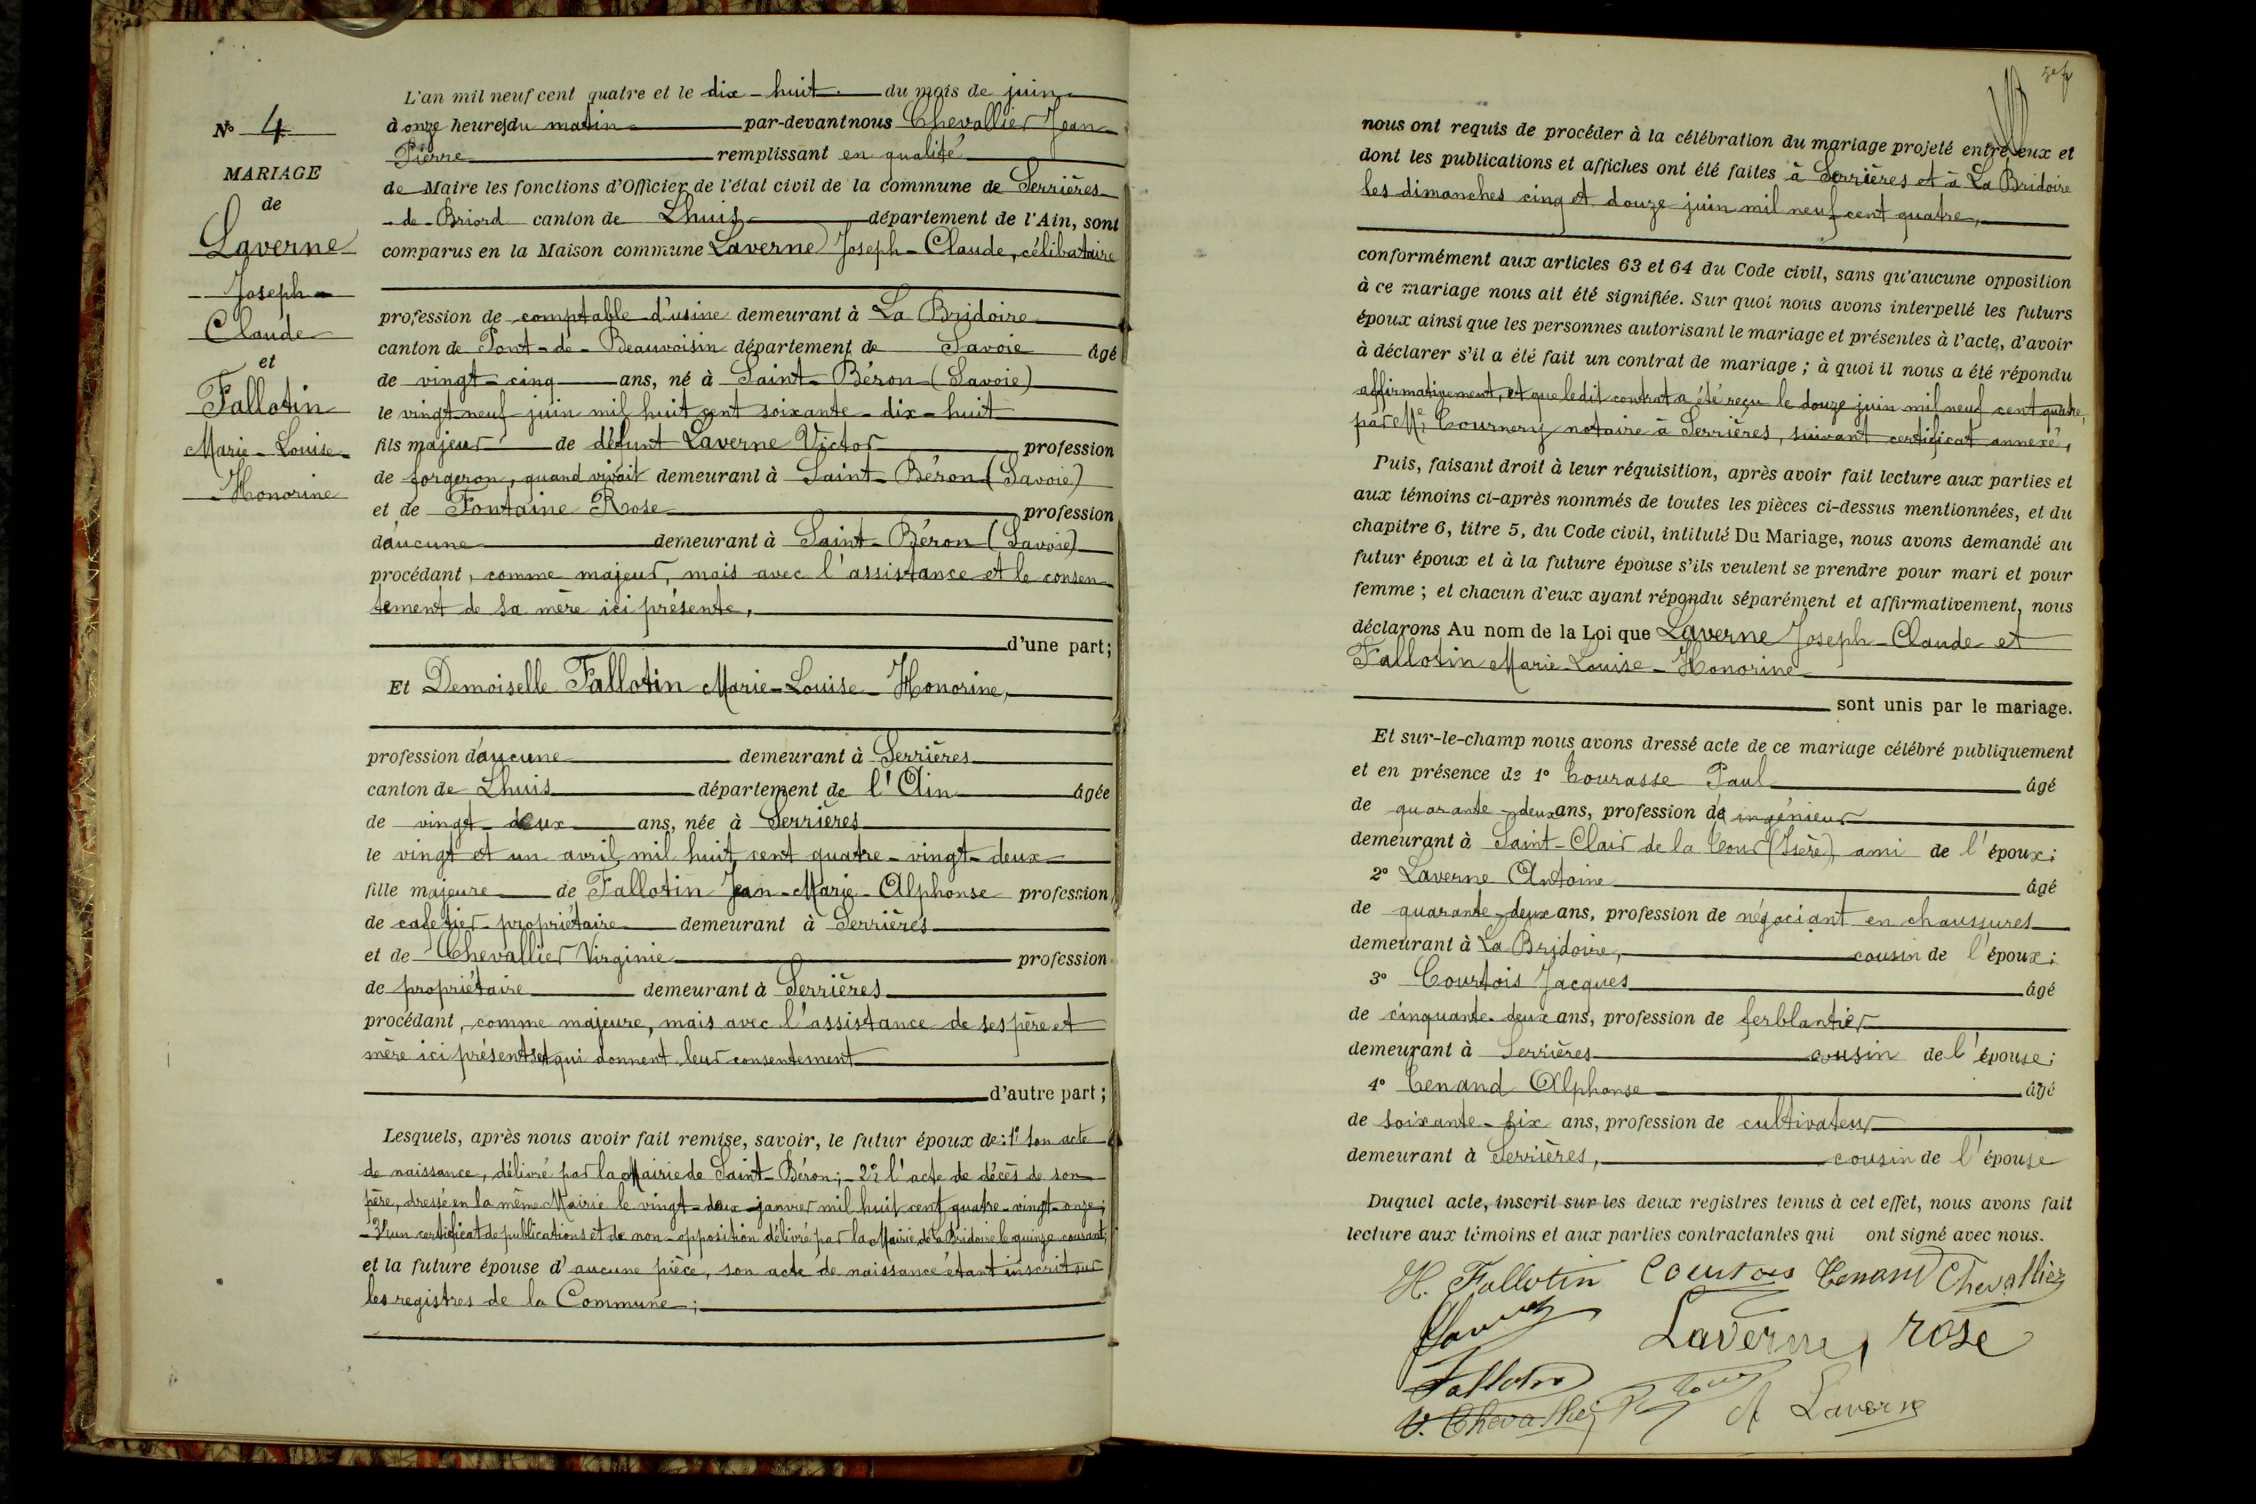 N° 4
MARIAGE
de
Laverne
Joseph-
Claude
et
Fallotin
Marie-Louise-
Honorine
L'an mil neuf cent quatre et le dix-huit du mois de juin
à onze heures du matin par-devant nous Chevallier Jean-
Pierre remplissant en qualité
de Maire les fonctions d'Officier de l'état civil de la commune de Serrières-
-de-Briord canton de Lhuis département de l'Ain, sont
comparus en la Maison commune Laverne Joseph-Claude, célibataire
profession de comptable d'usine demeurant à La Bridoire
canton de Pont-de-Beauvoisin département de Savoie âgé
de vingt-cinq ans, né à Saint-Béron (Savoie)
le vingt neuf juin mil huit cent soixante-dix-huit
fils majeur de défunt Laverne Victor profession
de forgeron, quand vivait demeurant à Saint-Béron (Savoie)
et de Fontaine Rose profession
d'aucune demeurant à Saint-Béron (Savoie)
procédant, comme majeur, mais avec l'assistance et le consen-
tement de sa mère ici présente,
d'une part;
Et Demoiselle Fallotin Marie-Louise-Honorine,
profession d'aucune demeurant à Serrières
canton de Lhuis département de l'Ain âgée
de vingt-deux ans, née à Serrières
le vingt et un avril mil huit cent quatre-vingt-deux
fille majeure de Fallotin Jean-Marie-Alphonse profession
de cafetier-propriétaire demeurant à Serrières
et de Chevallier Virginie profession
de propriétaire demeurant à Serrières
procédant, comme majeure, mais avec l'assistance de ses père et
mère ici présents et qui donnent leur consentement
d'autre part;
Lesquels, après nous avoir fait remise, savoir, le futur époux de: 1° son acte
de naissance, délivré par la Mairie de Saint-Béron; - 2° l'acte de décès de son
père, dressé en la même Mairie le vingt-deux janvier mil huit cent quatre-vingt-onze;
- 3° un certificat de publications et de non-opposition délivré par la Mairie de La Bridoire le quinze courant;
et la future épouse d'aucune pièce, son acte de naissance étant inscrit sur
les registres de la Commune;
nous ont requis de procéder à la célébration du mariage projeté entre eux et
dont les publications et affiches ont été faites à Serrières et à La Bridoire
les dimanches cinq et douze juin mil neuf cent quatre,
conformément aux articles 63 et 64 du Code civil, sans qu'aucune opposition
à ce mariage nous ait été signifiée. Sur quoi nous avons interpellé les futurs
époux ainsi que les personnes autorisant le mariage et présentes à l'acte, d'avoir
à déclarer s'il a été fait un contrat de mariage; à quoi il nous a été répondu
affirmativement, et que ledit contrat a été reçu le douze juin mil neuf cent quatre,
par Me Cournery notaire à Serrières, suivant certificat annexé,
Puis, faisant droit à leur réquisition, après avoir fait lecture aux parties et
aux témoins ci-après nommés de toutes les pièces ci-dessus mentionnées, et du
chapitre 6, titre 5, du Code civil, intitulé Du Mariage, nous avons demandé au
futur époux et à la future épouse s'ils veulent se prendre pour mari et pour
femme; et chacun d'eux ayant répondu séparément et affirmativement, nous
déclarons Au nom de la Loi que Laverne Joseph-Claude et
Fallotin Marie-Louise-Honorine
sont unis par le mariage.
Et sur-le-champ nous avons dressé acte de ce mariage célébré publiquement
et en présence de 1° Courasse Paul âgé
de quarante-deux ans, profession d'ingénieur
demeurant à Saint-Clair de la Tour (Isère) ami de l'époux;
2° Laverne Antoine âgé
de quarante-deux ans, profession de négociant en chaussures
demeurant à La Bridoire, cousin de l'époux;
3° Courtois Jacques âgé
de cinquante-deux ans, profession de ferblantier
demeurant à Serrières cousin de l'épouse;
4° Tenand Alphonse âgé
de soixante-six ans, profession de cultivateur
demeurant à Serrières, cousin de l'épouse
Duquel acte, inscrit sur les deux registres tenus à cet effet, nous avons fait
lecture aux témoins et aux parties contractantes qui ont signé avec nous.
H. Fallotin Courtois Tenand Chevallier
Laverne rose
Fallotin
V. Chevallier A Laverne